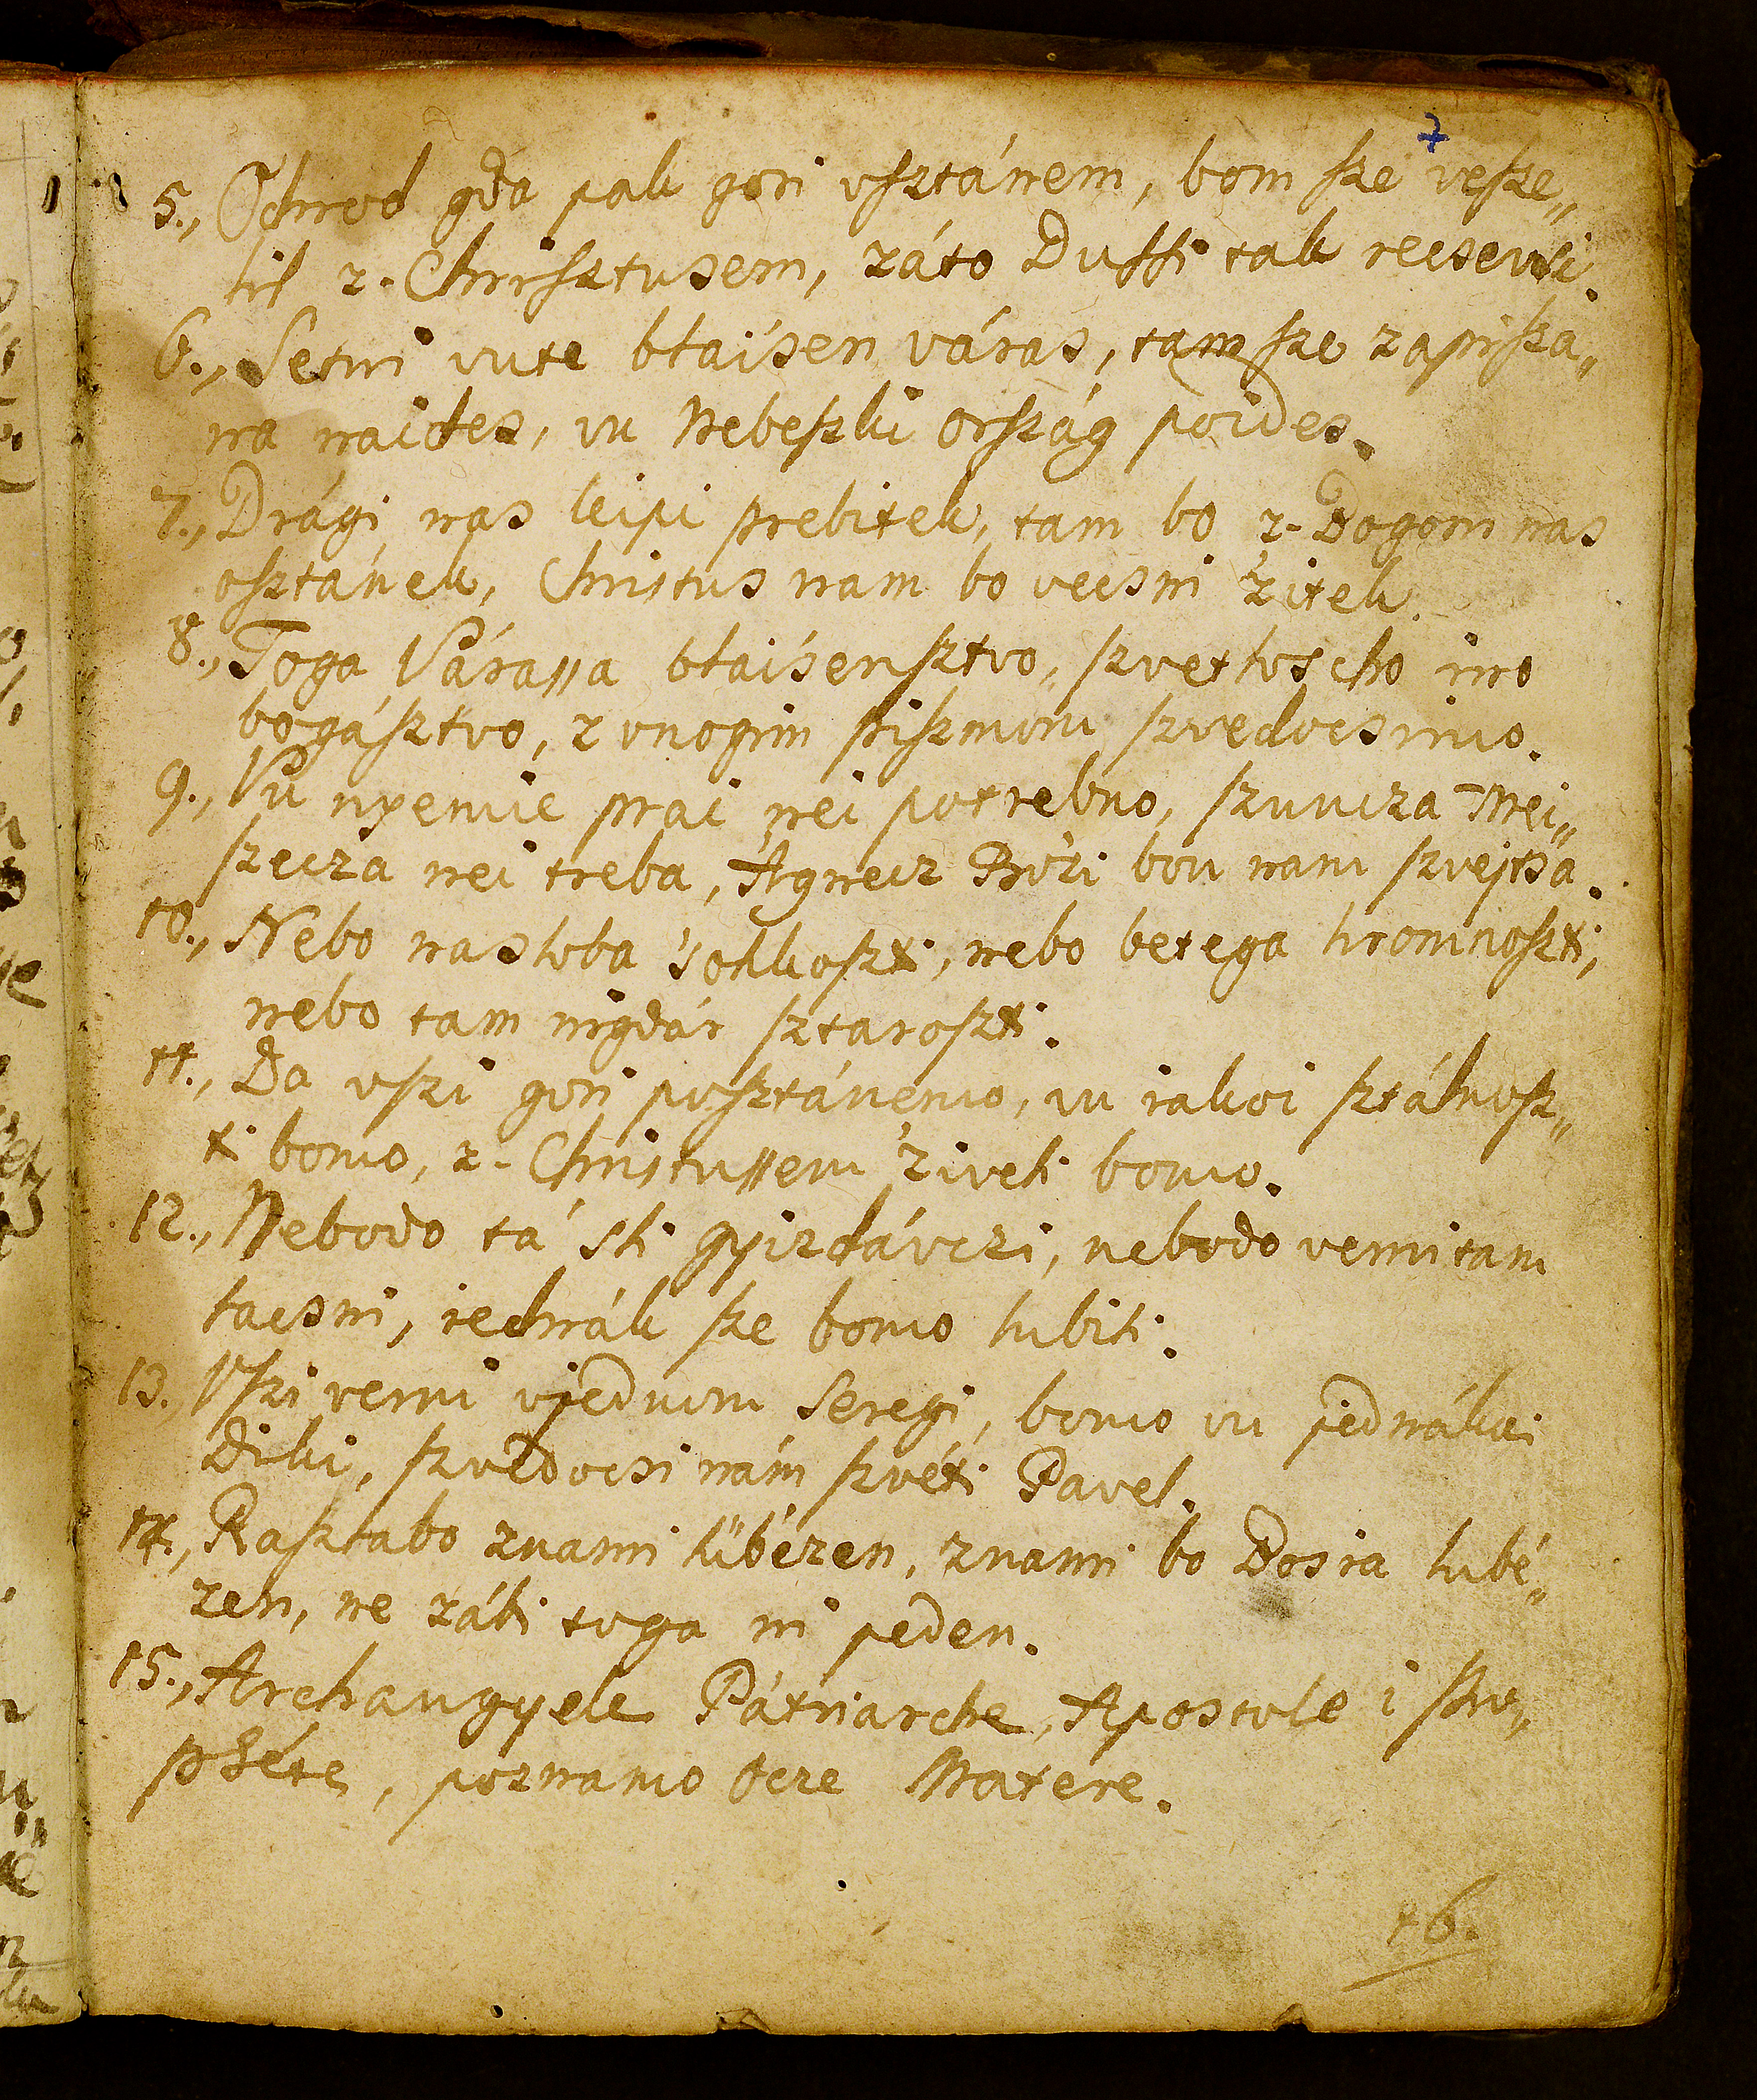 7
5., Odnod gda pak gori vſztánem, bom ſze veſze„
lil z-Chriſztusem, záto Duſſi tak recsevsi.
6., Setni vute blaisen város, tam ſze zapiſza„
na naides, vu Nebeſzki orſzág poides.
7., Drági nas leipi prebitek, tam bo z-Bogom nas
oſztánek, Christus nam bo vecsni 'zitek.
8., Toga Váraſſa blaisenſztvo, ſzvetloscho ino
bogáſztvo, z vnogim piſzmom ſzvedocsimo.
9., Vu nyemie prai nei potrebno, ſzuncza Mei„
ſzecza nei treba, Agnecz Bo'zi bou nam ſzvejtsa.
10., Nebo nasloba 'sohkoſzti, nebo betega hromnoſzti,
nebo tam nigdár ſztaroſzti.
11., Da vſzi gori poſztánemo, vu iakoi ſztálnoſz„
ti bomo, z-Christuſſem 'ziveli bomo.
12., Nebodo tá sli gyizdávczi, nebodo verni tam
lacsni, iednák ſze bomo lubili.
13., Vſzi verni vjednom Seregi, bomo vu jednákoi
Diki, ſzvedocsi nám ſzvéti Pavel.
14., Raſztabo znami lübézen, znami bo Bosia lubé„
zen, ne zábi toga ni jeden.
15., Archangyele Pátriarche, Apostole i Pro„
phéte, poznamo Ocze Matere.
16.